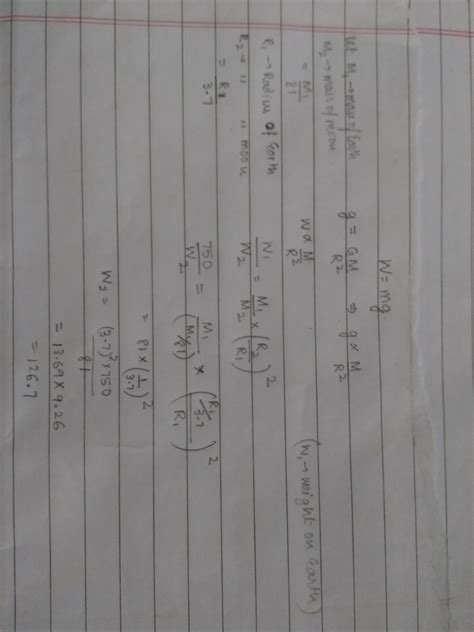 W = mg
Let M₁ → mass of Earth
M₂ → mass of moon
= M₁/81
g = GM/R² ⇒ g ∝ M/R²
W ∝ M/R²
R₁ → Radius of Earth
R₂ → " " moon
= R₁/3.7
(W₁ → weight on Earth)
W₁/W₂ = M₁/M₂ × (R₂/R₁)²
750/W₂ = M₁/(M₁/81) × ((R₁/3.7)/R₁)²
= 81 × (1/3.7)²
W₂ = (3.7)² × 750/81
= 13.69 × 9.26
= 126.7